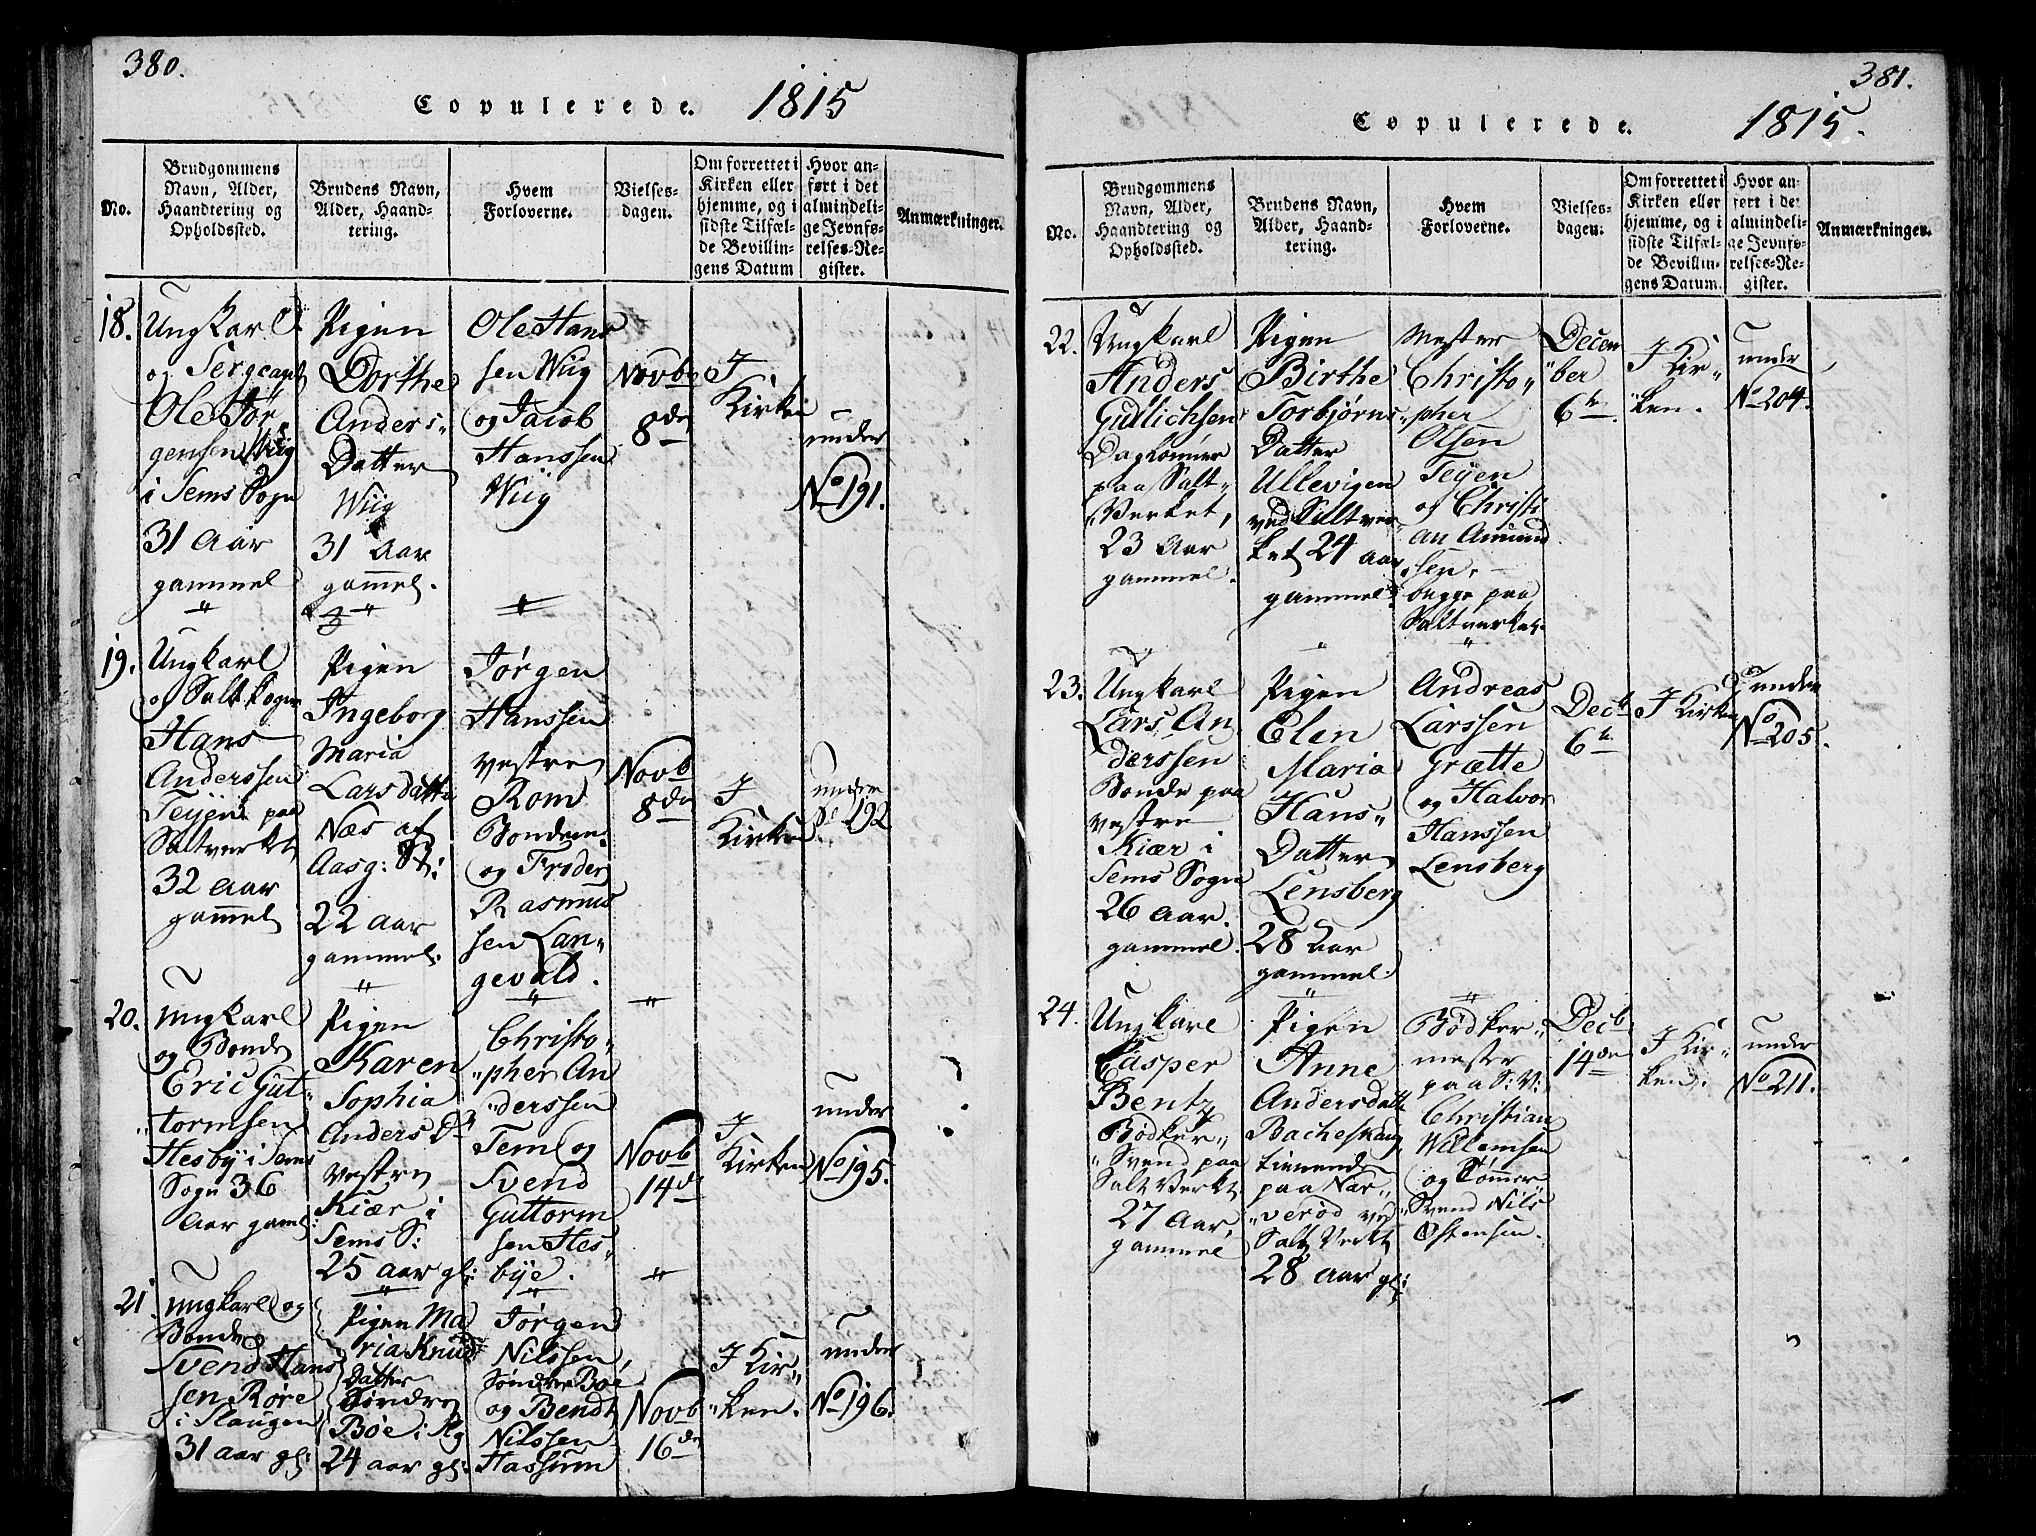 380.
Copulerede. 1815
No.
Brudgommens
Navn, Alder,
Haandtering og
Opholdssted.
Brudens Navn,
Alder, Haand-
tering.
Hvem
Forloverne.
Vielses-
dagen.
Om forrettet i
Kirken eller
hjemme, og i
sidste Tilfæl-
de Bevillin-
gens Datum
Hvor an-
ført i det
almindeli-
ge Jevnfø-
relses-Re-
gister.
Anmærkninger.
18.
Ungkarl
og Sergeant
Ole Jør-
gensen Wiig
i Sems Sogn
31 Aar
gammel
Pigen
Dorthe
Anders-
Datter
Wiig
31 Aar
gammel.
Ole Hans
sen Wiig
og Jacob
Hanssen
Wiig
Novb
8de
I
Kirken
under
No 191.
19.
Ungkarl
og Saltkoger
Hans
Anderssen
Teyen paa
Saltverket
32 Aar
gammel
Pigen
Ingeborg
Maria
Larsdatter
Næs af
Aasg: St:
22 aar
gammel.
Jørgen
Hanssen
vestre
Rom
Bonden
og Froder
Rasmus
sen Lan-
gevold.
Novb
8de
I
Kirken
under
192
20.
Ungkarl
og Bonde
Eric Gut-
tormsen
Hesby i Sems
Sogn 36
Aar gaml:
Pigen
Karen
Sophia
Anders D
vestre
Kiær i
Sems S:
25 aar gl:
Christo-
pher An
derssen
Tem og
Svend
Guttorm
sen Hes-
bye.
Novb
14de
I
Kirken
under
No 195.
21.
Ungkarl og
Bonde
Svend Hans
sen Røre
i Slaugen
31 aar gl:
Pigen Ma
ria Knud
Datter
Søndre
Bøe i Ag
24 aar gl:
Jørgen
Nilssen,
Søndre Boe
og Bendt
Nilssen
Hassum
Novb
16de
I Kir-
ken.
under
No 196.
381.
Copulerede. 1815.
No.
Brudgommens
Navn, Alder,
Haandtering og
Opholdssted.
Brudens Navn,
Alder, Haand-
tering.
Hvem
Forloverne.
Vielses-
dagen.
Om forrettet i
Kirken eller
hjemme, og i
sidste Tilfæl-
de Bevillin-
gens Datum.
Hvor an-
ført i det
almindeli-
ge Jevnfø-
relses-Re-
gister.
Anmærkninger.
22.
Ungkarl
Anders
Gullichsen
Daglønner
paa Salt-
Verket,
23 Aar
gammel.
Pigen
Birthe
Torbjørns
Datter
Ullevigen
ved Saltver
ket 24 aar
gammel
Mester
Christo-
pher
Olsen
Teyen
og Christi
an Amund
sen,
begge paa
Saltverket.
Decem
ber
6te
I Kir-
ken.
under
No 204.
23.
Ungkarl
Lars An
derssen
Bonde paa
vestre
Kiær i
Sems Sogn
26 Aar
gammel.
Pigen
Elen
Maria
Hans-
Datter
Lensberg
28 Aar
gammel.
Andreas
Larssen
Grætte
og Halvor
Hanssen
Lensberg
Decb
6te
I Kirken
under
No 205.
24.
Ungkarl
Casper
Bentz
Bødker-
Svend paa
Salt Verket
27 Aar,
gammel
Pigen
Anne
Andersdatter
Bacheskaug
tienende
paa Nar-
verød ved
Salt Verket
28 Aar gl:
Bødker-
mester
paa S: V:
Christian
Willemsen
og Tømmer
Svend Nils
Østensen.
Decb
14de
I Kir-
ken.
under
No 211.